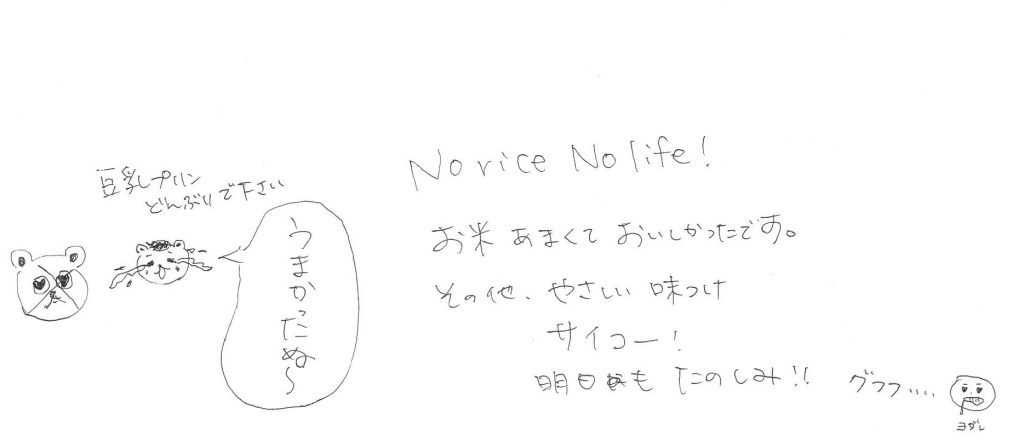 豆乳プリン
どんぶりで下さい
うまかったぬ〜
No rice No life!
お米 あまくて おいしかったです。
その他、やさしい 味つけ
サイコー!
明日も たのしみ!!
グフフ....
ヨダレ